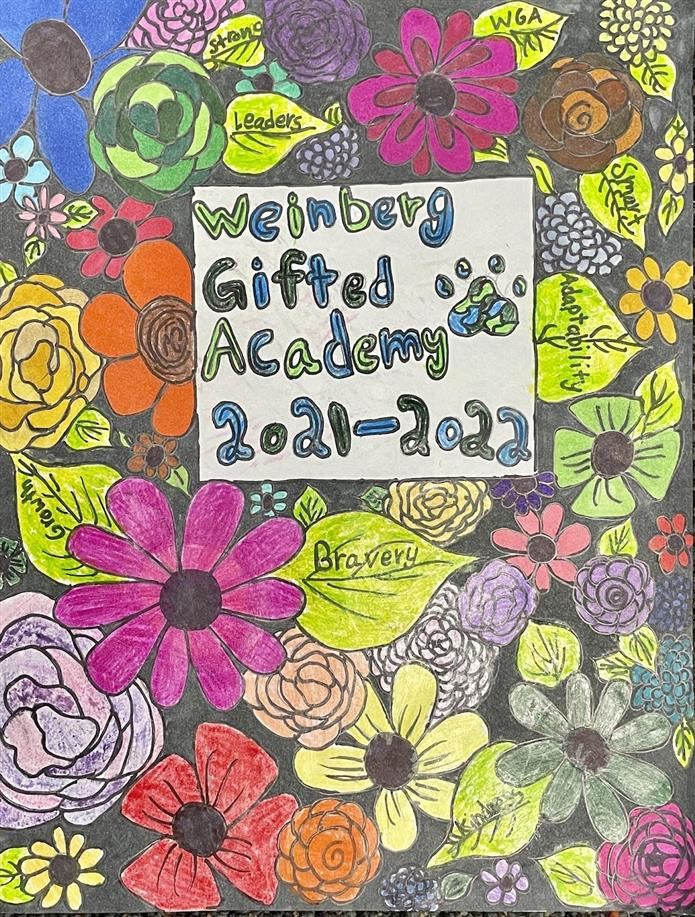 WGA
Strong
Leaders
Smart
Weinberg
Gifted
Academy
2021-2022
Adaptability
Growth
Bravery
Kindness